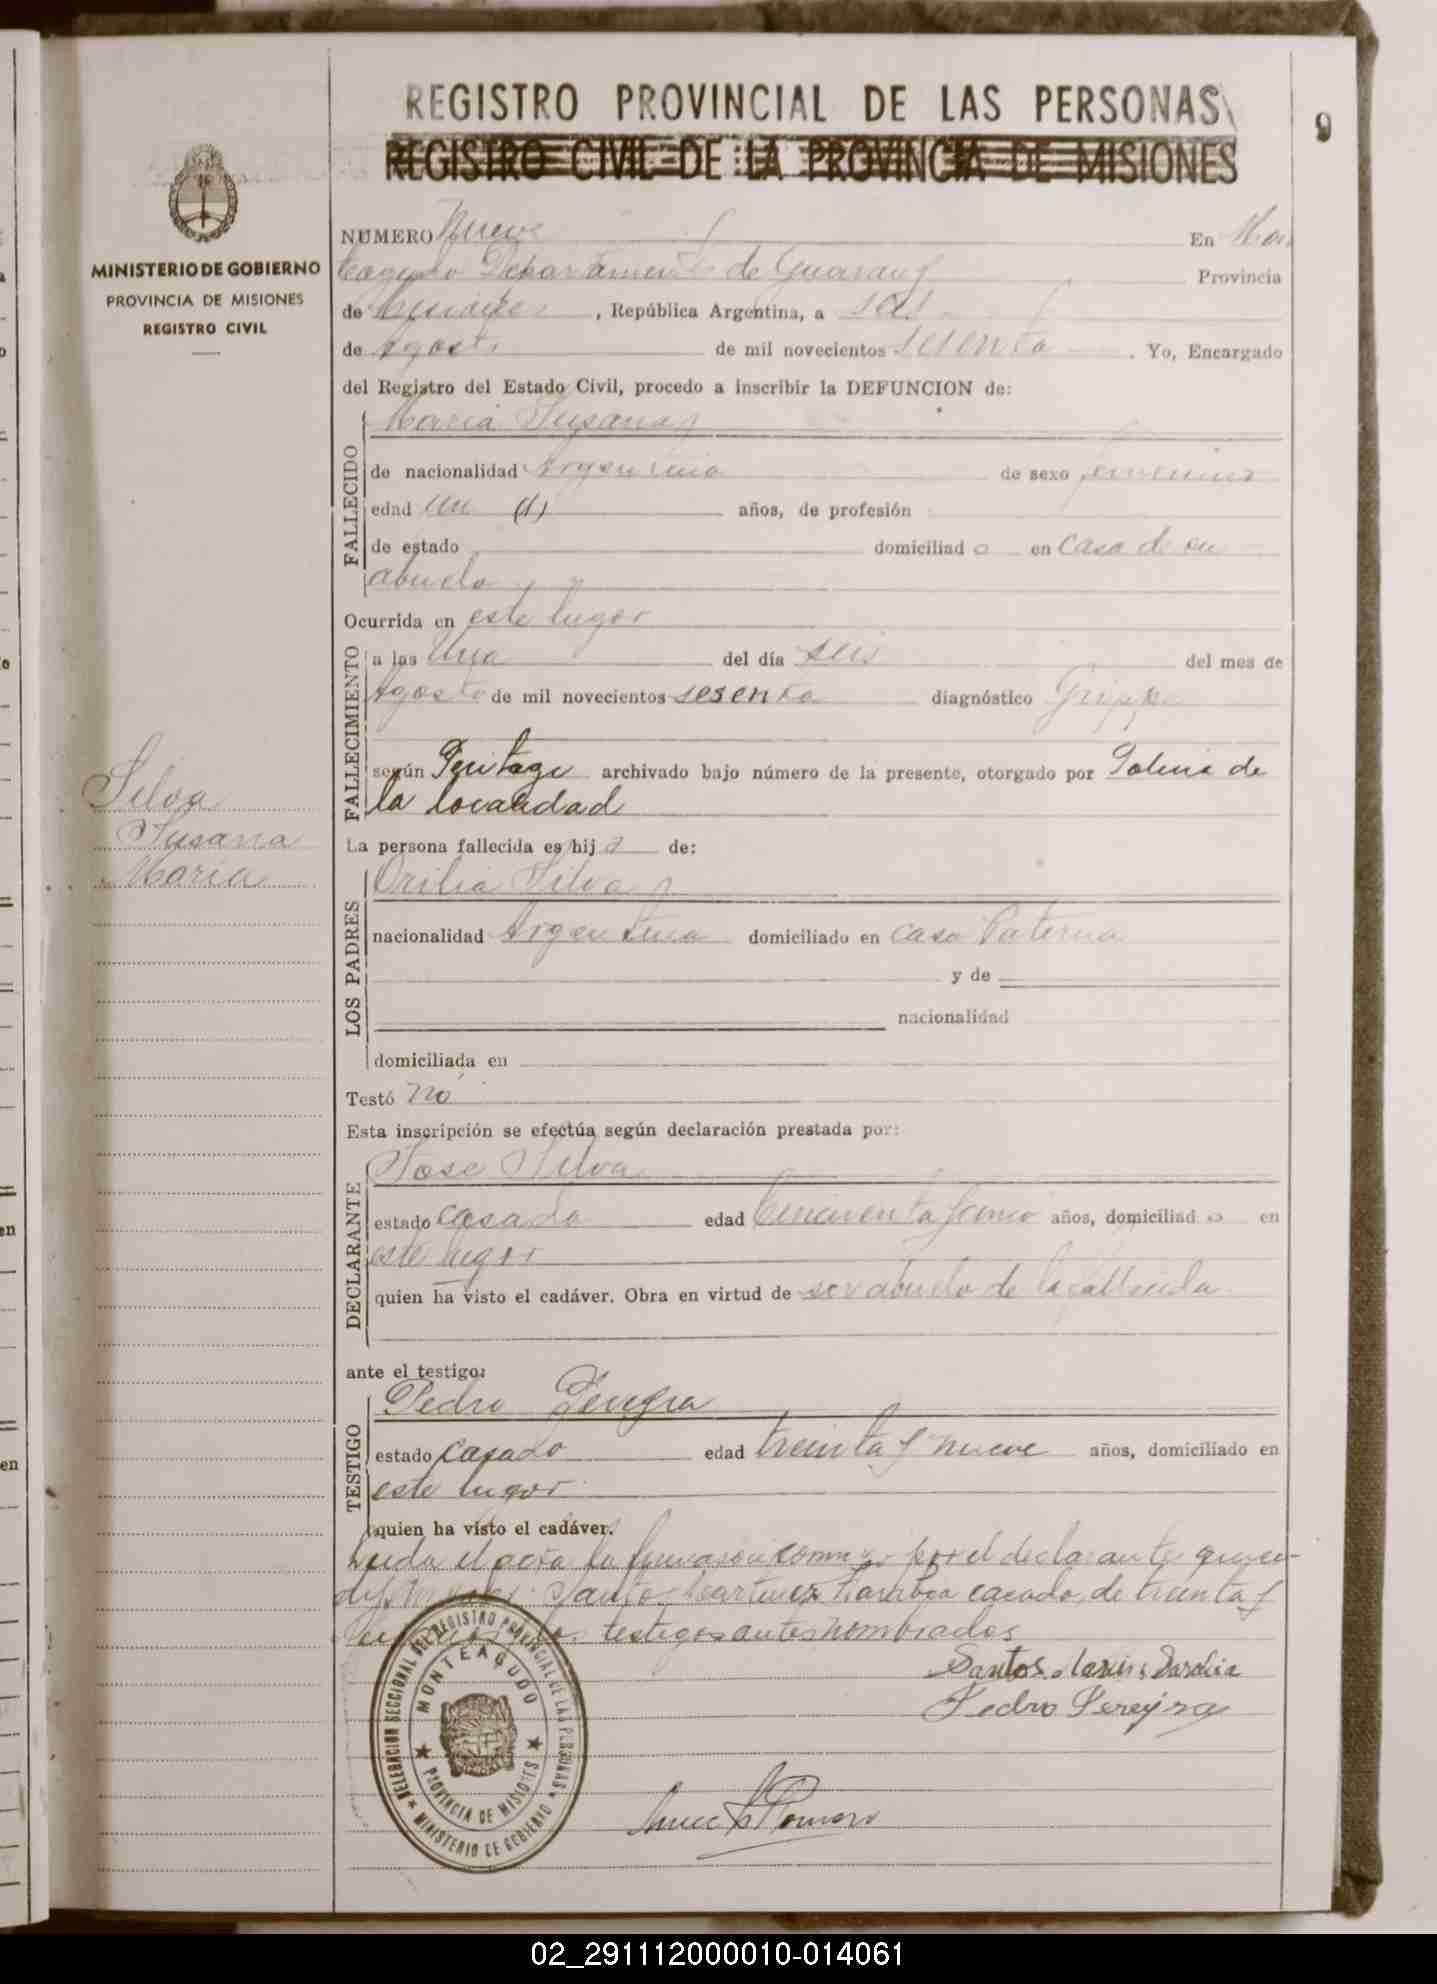 REGISTRO PROVINCIAL DE LAS PERSONAS
9
REGISTRO CIVIL DE LA PROVINCIA DE MISIONES
MINISTERIO DE GOBIERNO
PROVINCIA DE MISIONES
REGISTRO CIVIL
NUMERO Nueve En Mon
teagudo Departamento de Guarany Provincia
de Misiones, República Argentina, a seis
de Agosto de mil novecientos sesenta. Yo, Encargado
del Registro del Estado Civil, procedo a inscribir la DEFUNCION de:
FALLECIDO
Maria Susana
de nacionalidad Argentina de sexo femenino
edad un (1) años, de profesión
de estado domiciliado en casa de su
abuelo
Ocurrida en este lugar
FALLECIMIENTO
a las una del día seis del mes de
Agosto de mil novecientos sesenta diagnóstico Grippe
según Peritage archivado bajo número de la presente, otorgado por Policia de
la localidad
Silva
Susana
Maria
La persona fallecida es hija de:
LOS PADRES
Orilia Silva
nacionalidad Argentina domiciliado en casa Paterna
y de
nacionalidad
domiciliada en
Testó no
Esta inscripción se efectúa según declaración prestada por:
DECLARANTE
Jose Silva
estado casado edad cincuenta años, domiciliado en
este lugar
quien ha visto el cadáver. Obra en virtud de ser abuelo de la fallecida
ante el testigo:
TESTIGO
Pedro Pereyra
estado casado edad treinta y nueve años, domiciliado en
este lugar
quien ha visto el cadáver.
Leida el acta la conmigo por el declarante
Santos Martinez casado, de treinta y
los testigos antes nombrados
Santos
Pedro Pereyra
DELEGACION SECCIONAL DEL REGISTRO PROVINCIAL DE LAS PERSONAS
MONTEAGUDO
PROVINCIA DE MISIONES
MINISTERIO DE GOBIERNO
Romero
02_291112000010-014061